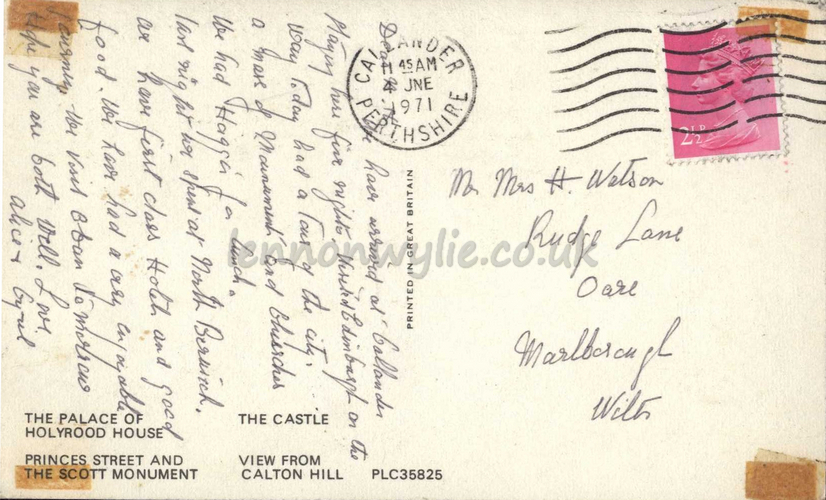 CALLANDER
11 45 AM
4 JNE
1971
PERTHSHIRE
2½P
Dear have arrived at Callander
staying here five nights. Visited Edinburgh on the
way today had a tour of the city.
a maze of Monuments and Churches
We had Haggis for lunch.
last night we spent at North Berwick.
we have first class Hotel and good
food. We have had a very enjoyable
journey. We visit Oban tomorrow
Hope you are both well. Love
Alice & Cyril
PRINTED IN GREAT BRITAIN
Mr Mrs H. Watson
Rudge Lane
Oare
Marlborough
Wilts
lennonwylie.co.uk
THE PALACE OF
HOLYROOD HOUSE
THE CASTLE
PRINCES STREET AND
THE SCOTT MONUMENT
VIEW FROM
CALTON HILL
PLC35825